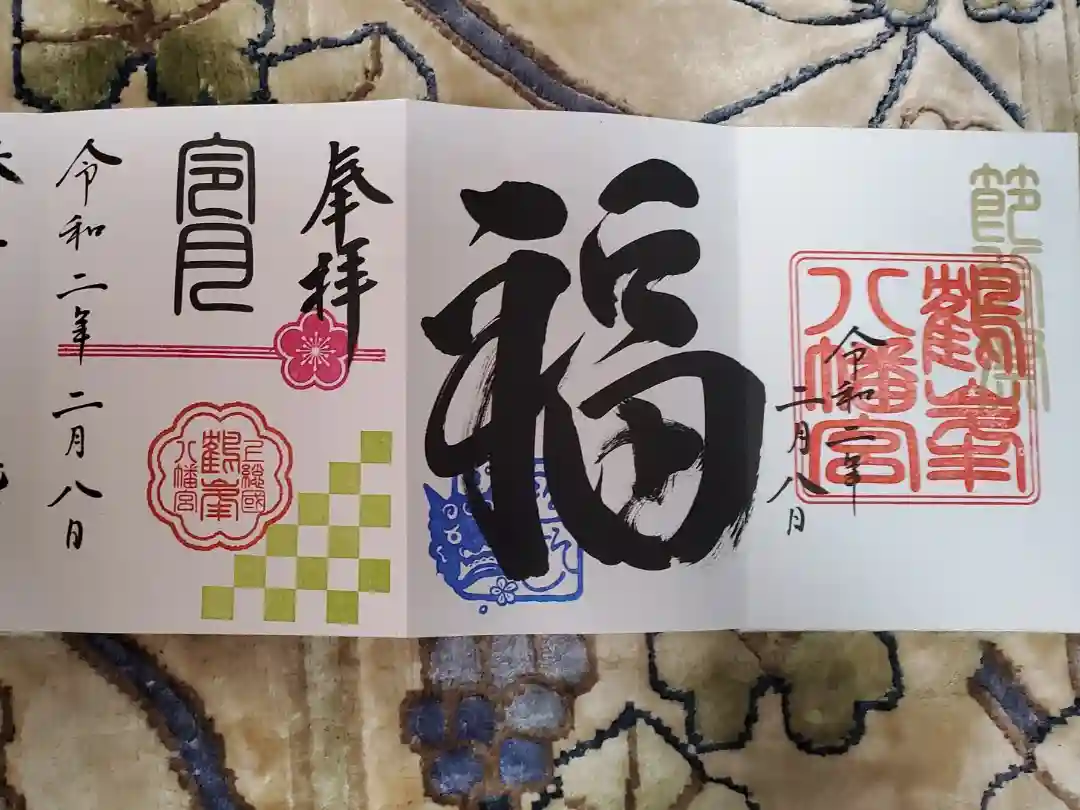 節
鶴峯
八幡宮
令和二年
二月八日
福
奉拝
令月
上総國
鶴峯
八幡宮
令和二年二月八日